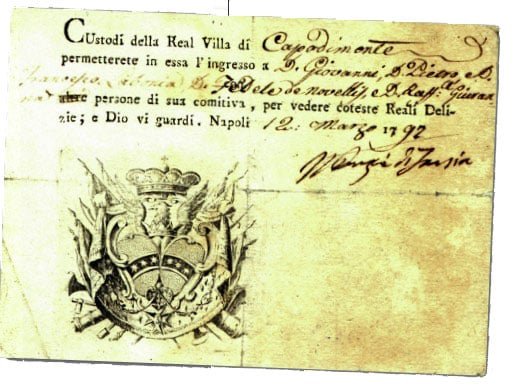 CUstodi della Real Villa di Capodimonte
permetterete in essa l'ingresso a D. Giovanni, D. Pietro, e D.
Francesco Labonia D. Fedele de novellis, e D. Raff.
altre persone di sua comitiva, per vedere coteste Reali Deli-
zie; e Dio vi guardi. Napoli 12. Marzo 1797